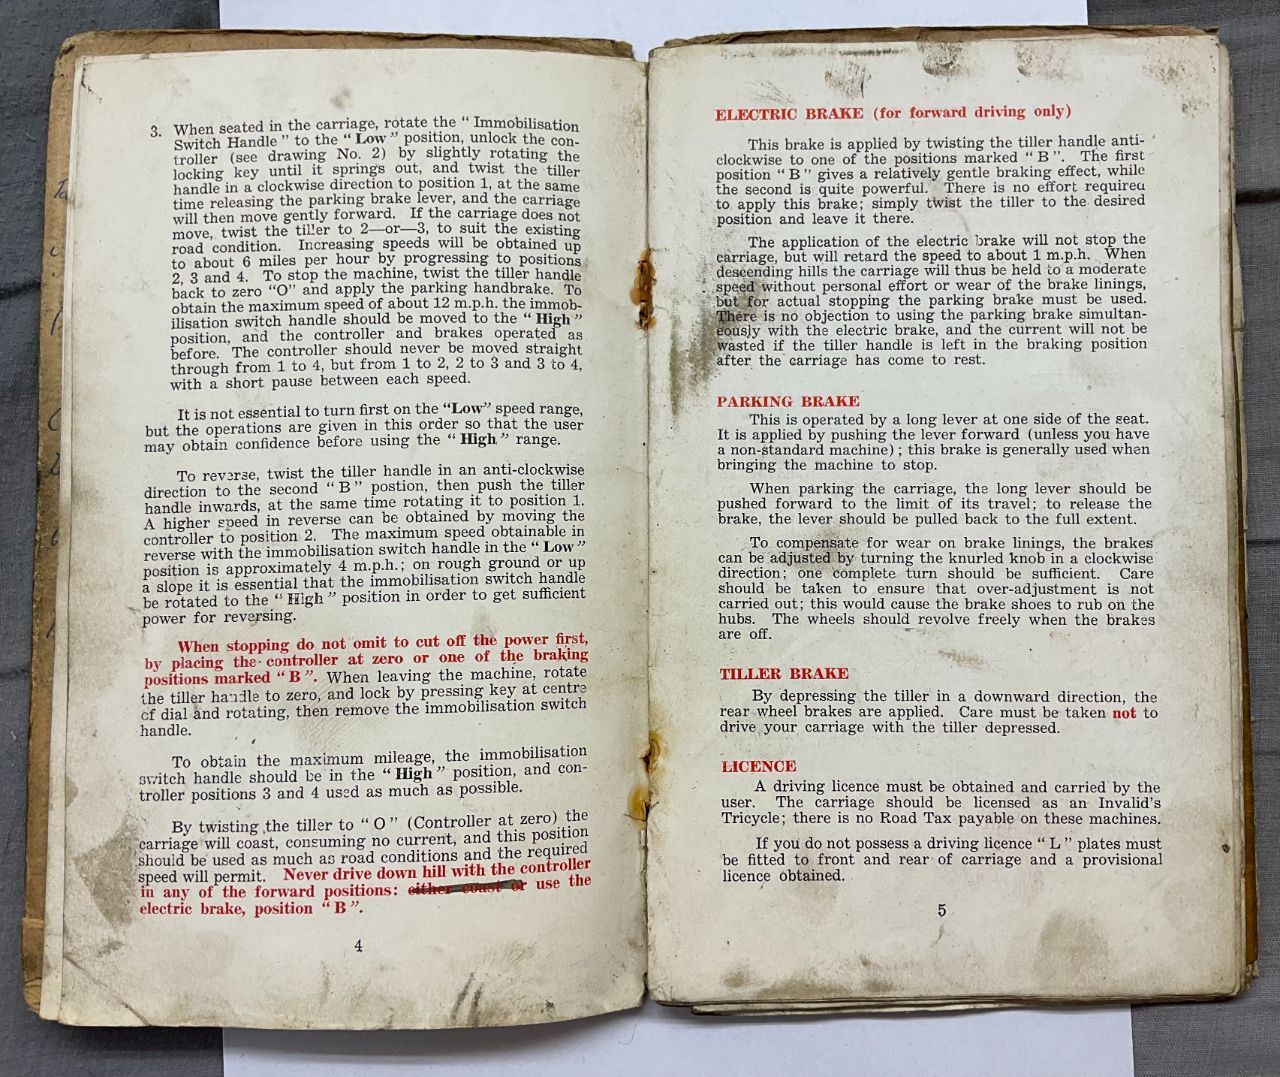 3. When seated in the carriage, rotate the “ Immobilisation
Switch Handle ” to the “ Low ” position, unlock the con-
troller (see drawing No. 2) by slightly rotating the
locking key until it springs out, and twist the tiller
handle in a clockwise direction to position 1, at the same
time releasing the parking brake lever, and the carriage
will then move gently forward. If the carriage does not
move, twist the tiller to 2—or—3, to suit the existing
road condition. Increasing speeds will be obtained up
to about 6 miles per hour by progressing to positions
2, 3 and 4. To stop the machine, twist the tiller handle
back to zero “O” and apply the parking handbrake. To
obtain the maximum speed of about 12 m.p.h. the immob-
ilisation switch handle should be moved to the “ High ”
position, and the controller and brakes operated as
before. The controller should never be moved straight
through from 1 to 4, but from 1 to 2, 2 to 3 and 3 to 4,
with a short pause between each speed.
It is not essential to turn first on the “Low” speed range,
but the operations are given in this order so that the user
may obtain confidence before using the “ High ” range.
To reverse, twist the tiller handle in an anti-clockwise
direction to the second “ B ” postion, then push the tiller
handle inwards, at the same time rotating it to position 1.
A higher speed in reverse can be obtained by moving the
controller to position 2. The maximum speed obtainable in
reverse with the immobilisation switch handle in the “ Low ”
position is approximately 4 m.p.h.; on rough ground or up
a slope it is essential that the immobilisation switch handle
be rotated to the “ High ” position in order to get sufficient
power for reversing.
When stopping do not omit to cut off the power first,
by placing the controller at zero or one of the braking
positions marked “ B ”. When leaving the machine, rotate
the tiller handle to zero, and lock by pressing key at centre
of dial and rotating, then remove the immobilisation switch
handle.
To obtain the maximum mileage, the immobilisation
switch handle should be in the “ High ” position, and con-
troller positions 3 and 4 used as much as possible.
By twisting the tiller to “ O ” (Controller at zero) the
carriage will coast, consuming no current, and this position
should be used as much as road conditions and the required
speed will permit. Never drive down hill with the controller
in any of the forward positions: either coast or use the
electric brake, position “ B ”.
4
ELECTRIC BRAKE (for forward driving only)
This brake is applied by twisting the tiller handle anti-
clockwise to one of the positions marked “ B ”. The first
position “ B ” gives a relatively gentle braking effect, while
the second is quite powerful. There is no effort required
to apply this brake; simply twist the tiller to the desired
position and leave it there.
The application of the electric brake will not stop the
carriage, but will retard the speed to about 1 m.p.h. When
descending hills the carriage will thus be held to a moderate
speed without personal effort or wear of the brake linings,
but for actual stopping the parking brake must be used.
There is no objection to using the parking brake simultan-
eously with the electric brake, and the current will not be
wasted if the tiller handle is left in the braking position
after the carriage has come to rest.
PARKING BRAKE
This is operated by a long lever at one side of the seat.
It is applied by pushing the lever forward (unless you have
a non-standard machine) ; this brake is generally used when
bringing the machine to stop.
When parking the carriage, the long lever should be
pushed forward to the limit of its travel; to release the
brake, the lever should be pulled back to the full extent.
To compensate for wear on brake linings, the brakes
can be adjusted by turning the knurled knob in a clockwise
direction; one complete turn should be sufficient. Care
should be taken to ensure that over-adjustment is not
carried out; this would cause the brake shoes to rub on the
hubs. The wheels should revolve freely when the brakes
are off.
TILLER BRAKE
By depressing the tiller in a downward direction, the
rear wheel brakes are applied. Care must be taken not to
drive your carriage with the tiller depressed.
LICENCE
A driving licence must be obtained and carried by the
user. The carriage should be licensed as an Invalid's
Tricycle; there is no Road Tax payable on these machines.
If you do not possess a driving licence “ L ” plates must
be fitted to front and rear of carriage and a provisional
licence obtained.
5